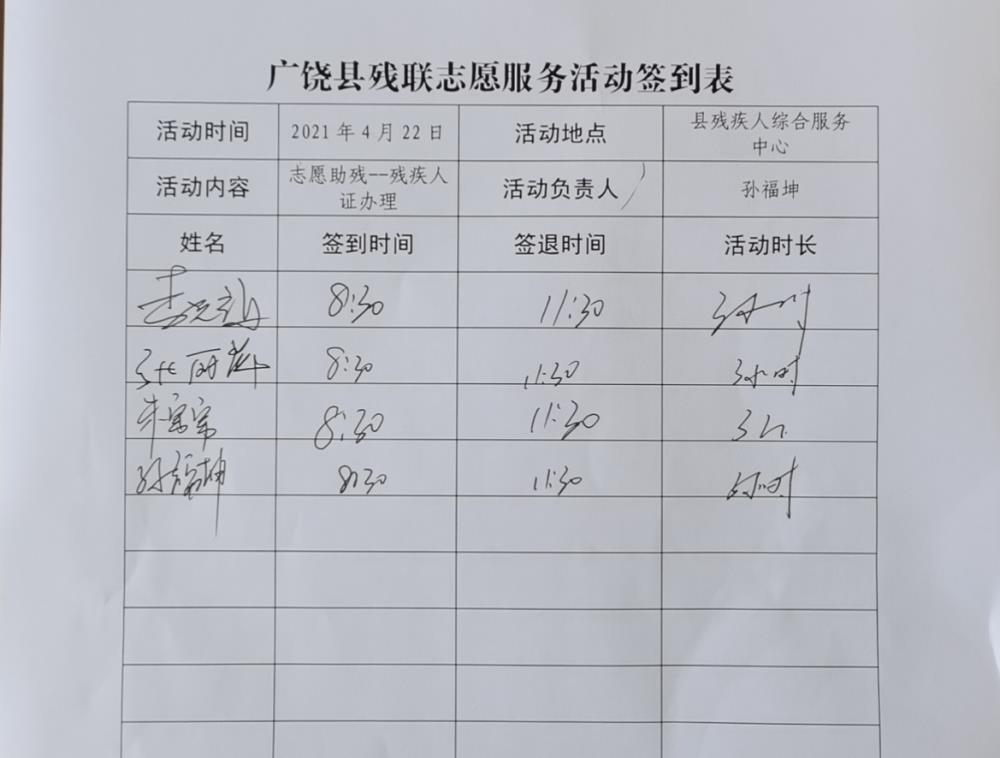 广饶县残联志愿服务活动签到表
活动时间 2021 年 4 月 22 日 活动地点 县残疾人综合服务
中心
活动内容 志愿助残--残疾人
证办理 活动负责人 孙福坤
姓名 签到时间 签退时间 活动时长
8:30 11:30 3小时
张丽萍 8:30 11:30 3小时
牛宝宝 8:30 11:30 3h
孙福坤 8:30 11:30 3小时